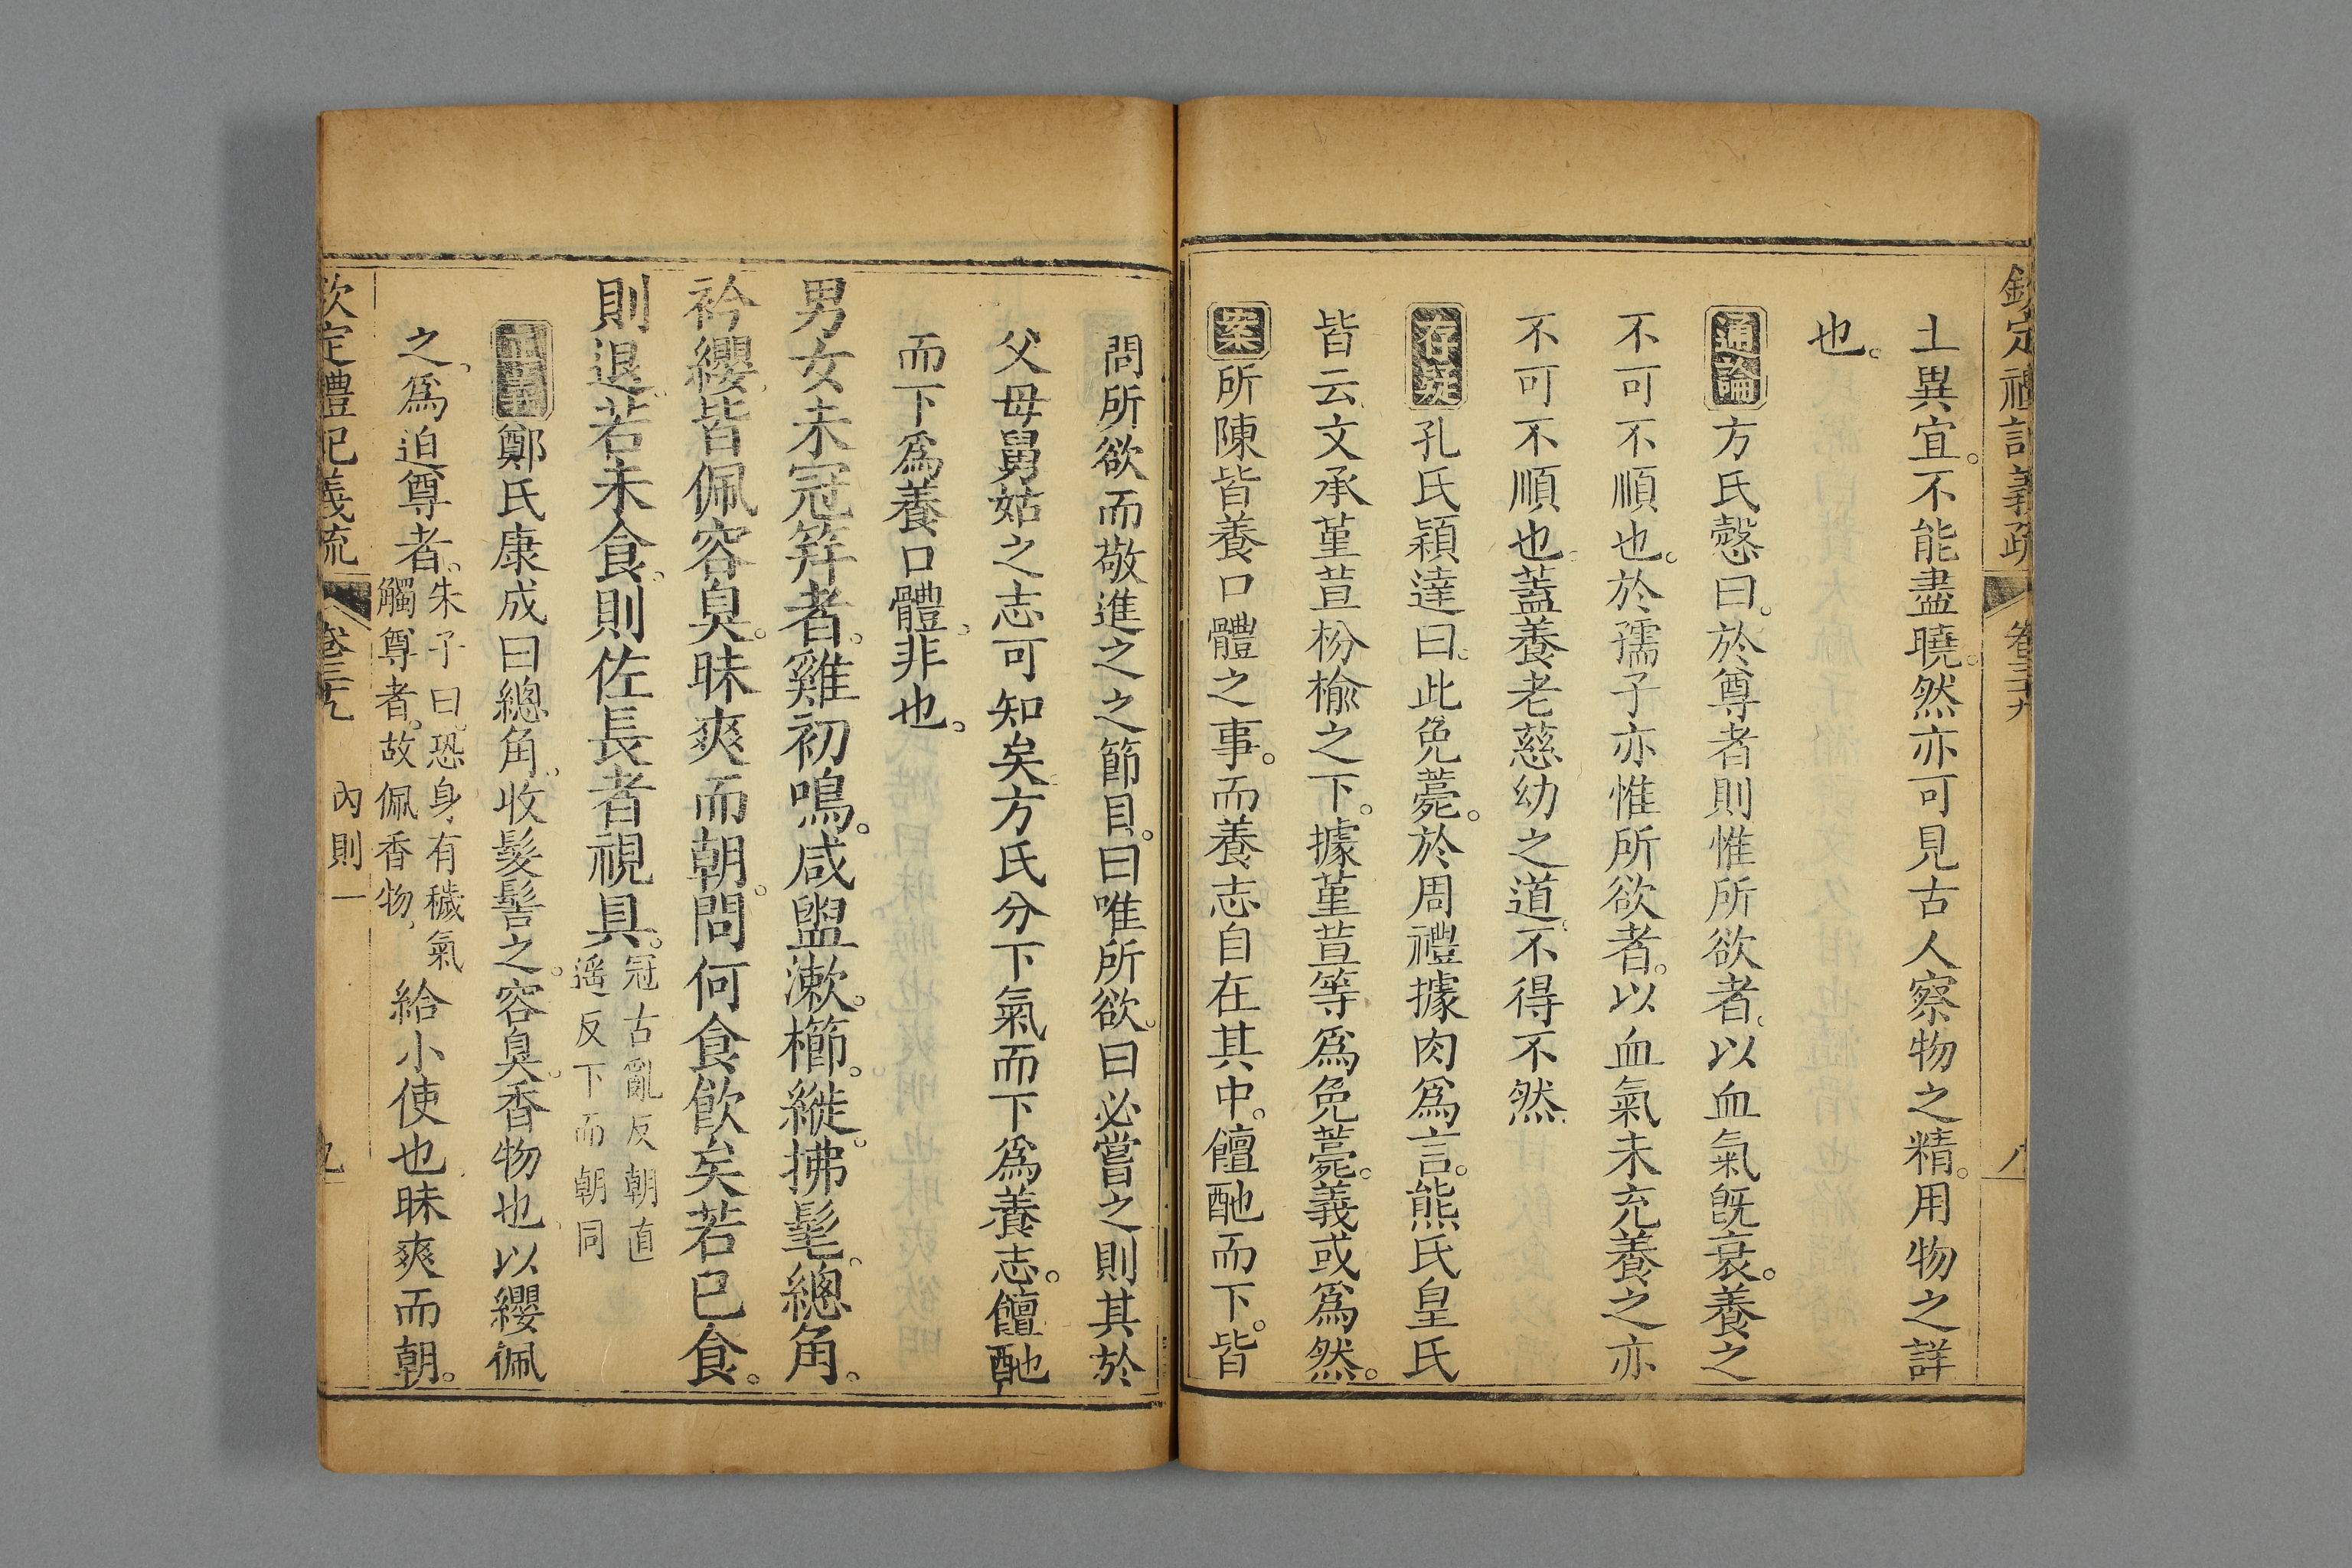 欽定禮記義疏 卷三十九 八
土異宜。不能盡曉。然亦可見古人察物之精。用物之詳
也。
通論方氏慤曰。於尊者則惟所欲者。以血氣旣衰。養之
不可不順也。於孺子亦惟所欲者。以血氣未充養之亦
不可不順也。蓋養老慈幼之道。不得不然。
存疑孔氏穎達曰。此免薧。於周禮據肉爲言。熊氏皇氏
皆云文承菫荁枌榆之下。據菫荁等爲免薧。義或爲然。
案所陳皆養口體之事。而養志自在其中。饘酏而下。皆
問所欲而敬進之之節目。曰唯所欲。曰必嘗之則其於
父母舅姑之志可知矣方氏分下氣而下爲養志。饘酏
而下爲養口體。非也。
男女未冠笄者。雞初鳴。咸盥漱。櫛。縰。拂髦。總角。
衿纓。皆佩容臭。昧爽而朝。問何食飮矣若已食。
則退。若未食。則佐長者視具。冠古亂反朝直
遥反下而朝同
正義鄭氏康成曰總角。收髮髻之。容臭。香物也。以纓佩
之。爲迫尊者。朱子曰。恐身有穢氣
觸尊者。故佩香物。給小使也。昧爽而朝。
欽定禮記義疏 卷三十九 內則一 九